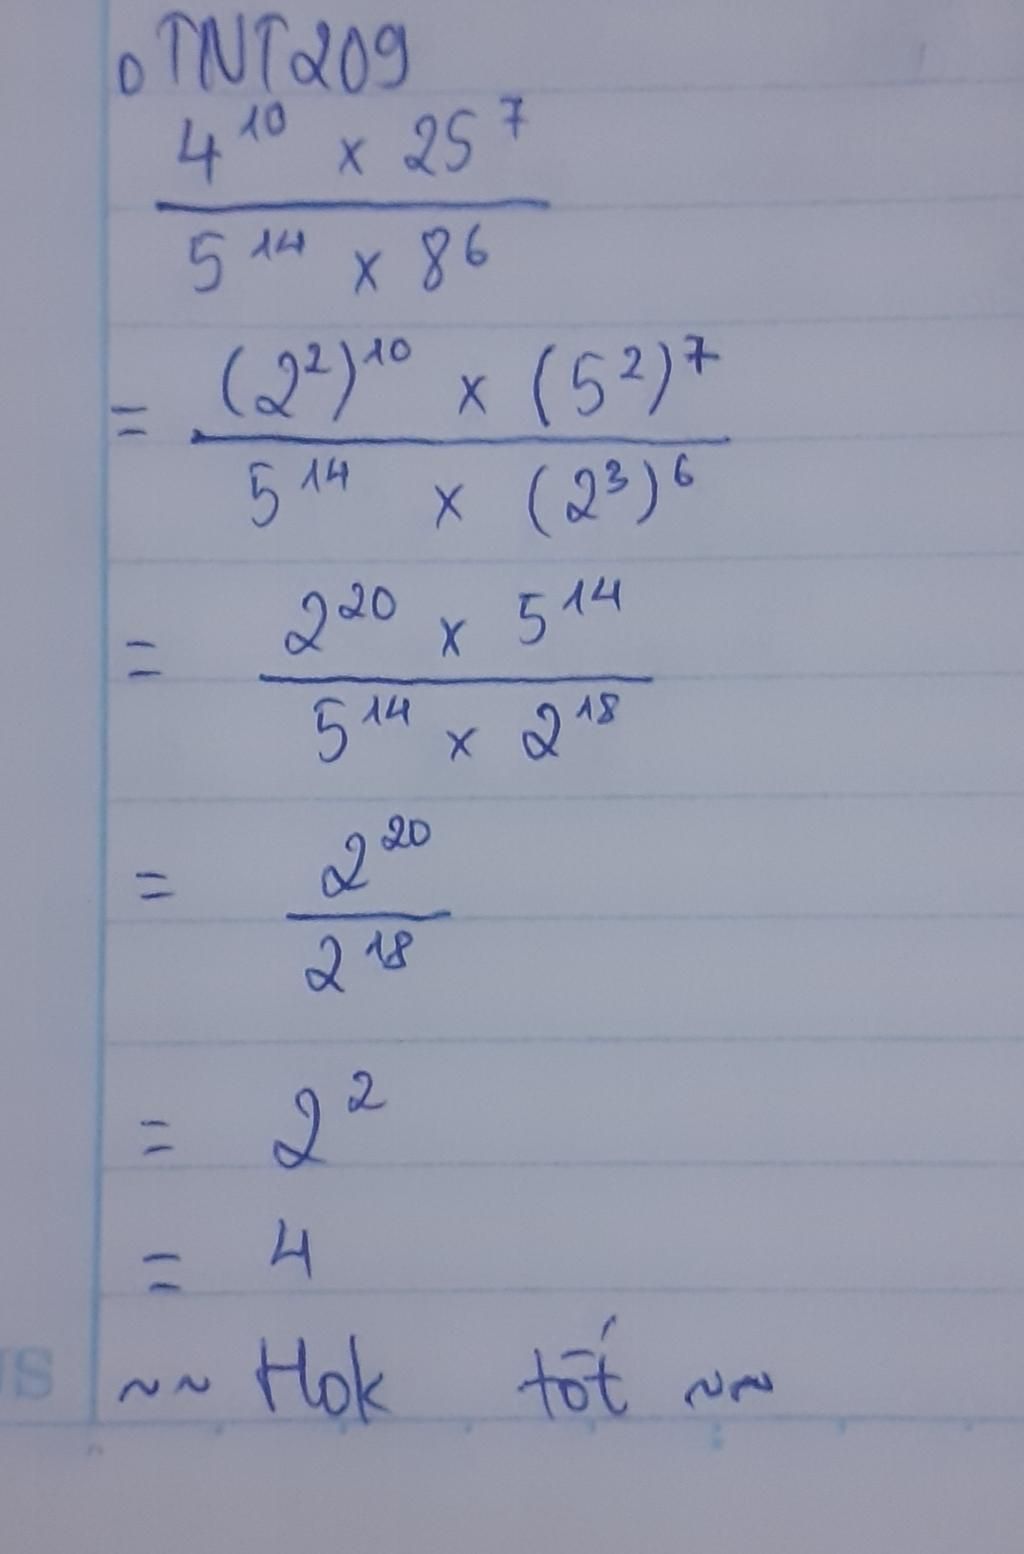 o TNT209
4^10 x 25^7
5^14 x 8^6
= (2^2)^10 x (5^2)^7
5^14 x (2^3)^6
= 2^20 x 5^14
5^14 x 2^18
= 2^20
2^18
= 2^2
= 4
~~ Hok tốt ~~